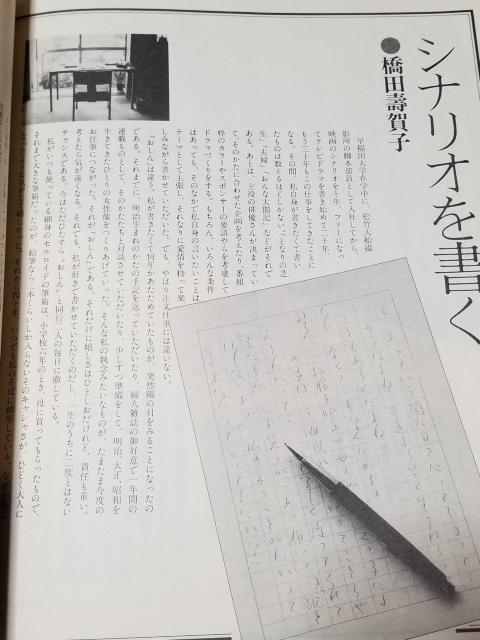 シナリオを書く
●橋田壽賀子
早稲田大学在学中に、松竹大船撮
影所の脚本部員として入社してから、
映画のシナリオを十年、フリーになっ
てテレビドラマを書き始めて二十年、
もう三十年もこの仕事をしてきたことに
なる。その間、私自身が書きたくて書い
たものは数えるほどしかない。となりの芝
生」「夫婦」「おんな太閤記」などがそれで
ある。あとは、主役の俳優さんが決まってい
て、そのかたに合わせた企画を考えたり、番組
枠のカラーやスポンサーの要請やらを考慮して
ドラマづくりをする。もちろん、いろんな条件
はあっても、そのなかで私自身の言いたいことは
テーマとして主張し、それなりに愛情を持って楽
しみながら書かせていただいた。でも、やはり注文仕事には違いない。
「おしん」は違う。私が書きたくて何年かあたためていたものが、突然陽の目をみることになったの
である。それまでに、明治生まれのかたの手記を送っていただいたり、婦人雑誌の御好意で一年間の
連載ものとして、そのかたたちと対談させていただいたり、少しずつ準備をして、明治、大正、昭和を
生きてきたひとりの女性像をつくりあげていった。そんな私の執念みたいなものが、たまたま今度の
お仕事につながった。それが「おしん」である。それだけに嬉しさはひとしおだけれど、責任も重い。
考えたら気が遠くなる。それでも、私が好きで書かせていただくのだし、一生のうちに二度とはない
チャンスである。今はただひたすら〝おしん〟と同行二人の毎日に徹している。
私がいつも使っている細身のセルロイドの筆箱は、小学校六年のとき、母に買ってもらったもので、
それまで大きな筆箱だったのが、鉛筆なら三本くらいしか入らない、そのキャシャさが、ひどく大人に